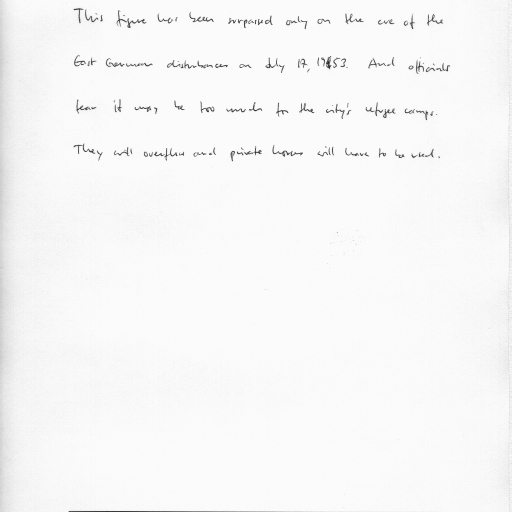 This figure has been surpassed only on the eve of the
East German disturbances on July 17, 1953. And officials
fear it may be too much for the city's refugee camps.
They will overflow and private homes will have to be used.